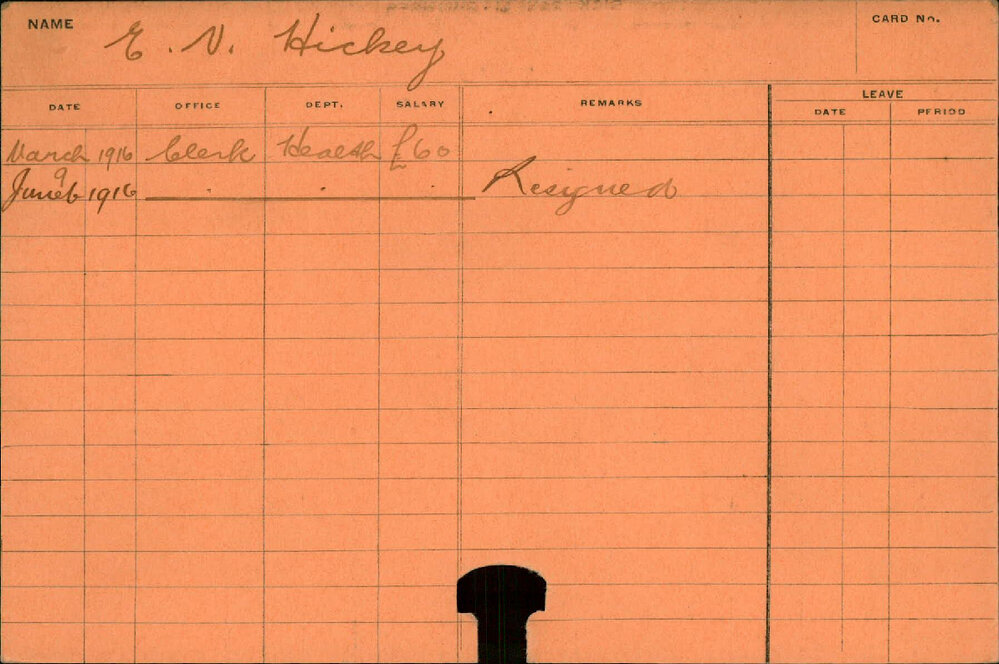 NAME E. V. Hickey CARD No.
DATE OFFICE DEPT. SALARY REMARKS LEAVE
DATE PERIOD
March 1916 Clerk Health £60
June 1916 Resigned